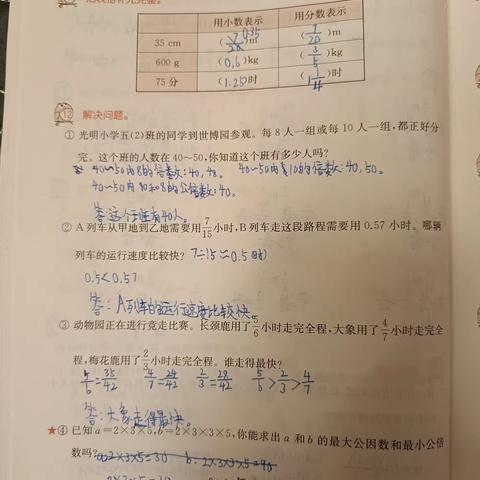 用小数表示 用分数表示
35 cm (7/20 0.35)m (7/20)m
600 g (0.6)kg (3/5)kg
75分 (1.25)时 (1 1/4)时
12 解决问题。
① 光明小学五(2)班的同学到世博园参观。每8人一组或每10人一组,都正好分
完。这个班的人数在40~50,你知道这个班有多少人吗?
40~50内8的倍数:40,48。 40~50内10的倍数:40,50。
40~50内10和8的公倍数:40。
答:这个班有40人。
② A列车从甲地到乙地需要用7/15小时,B列车走这段路程需要用0.57小时。哪辆
列车的运行速度比较快? 7÷15≈0.5(时)
0.5<0.57
答:A列车的运行速度比较快。
③ 动物园正在进行竞走比赛。长颈鹿用了5/6小时走完全程,大象用了4/7小时走完全
程,梅花鹿用了2/3小时走完全程。谁走得最快?
5/6=35/42 4/7=24/42 2/3=28/42 5/6>2/3>4/7
答:大象走得最快。
★④ 已知a=2×3×5,b=2×3×3×5,你能求出a和b的最大公因数和最小公倍
数吗? a:2×3×5=30 b:2×3×3×5=90